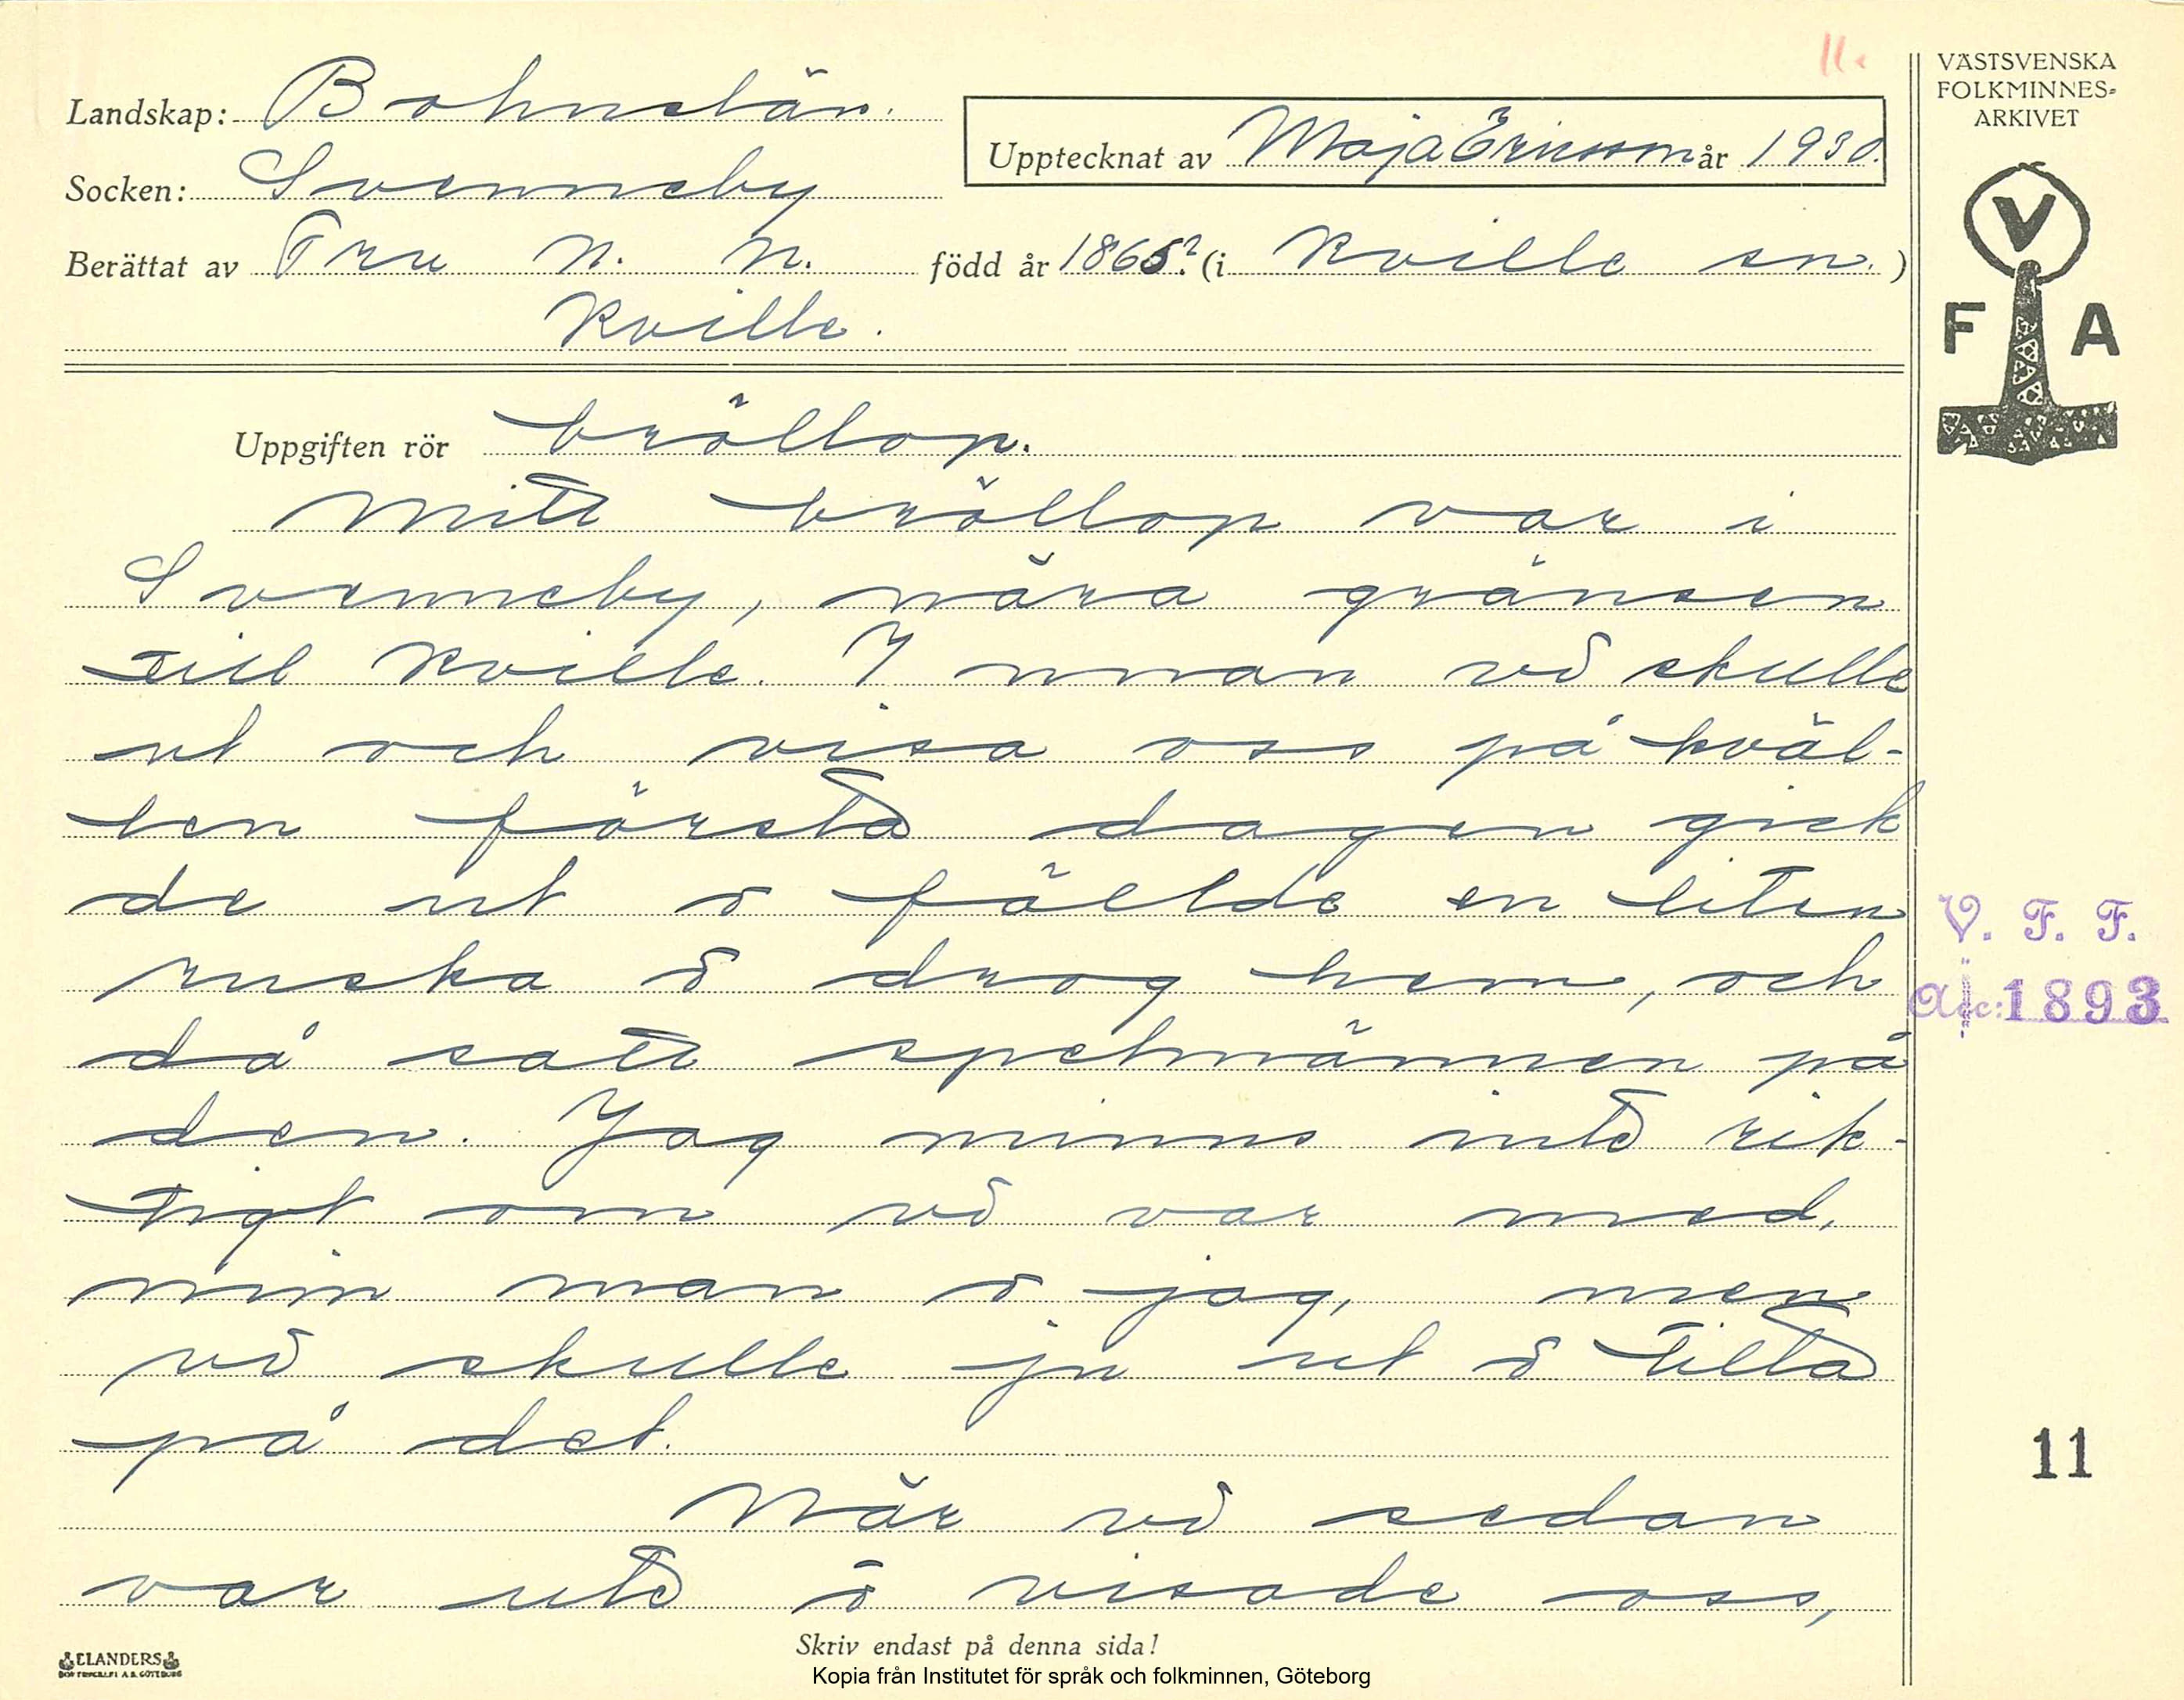 11.
VÄSTSVENSKA
FOLKMINNES=
ARKIVET
V
F A
Landskap: Bohuslän.
Upptecknat av Maja Ericsson år 1930.
Socken: Svenneby
Berättat av Fru N. N. född år 1865? (i Kville sn.)
Kville.
Uppgiften rör bröllop.
Mitt bröllop var i
Svenneby, nära gränsen
till Kville. Innan vi skulle
ut och visa oss på kväl-
len första dagen gick
de ut o fällde en liten
ruska o drog hem, och
då satt spelmännen på
den. Jag minns inte rik-
tigt om vi var med,
min man o jag, men
vi skulle ju ut o titta
på det.
När vi sedan
var ute o visade oss,
V. F. F.
Acc: 1893
11
Skriv endast på denna sida!
ELANDERS
BOKTRYCKERI A.B. GÖTEBORG
Kopia från Institutet för språk och folkminnen, Göteborg